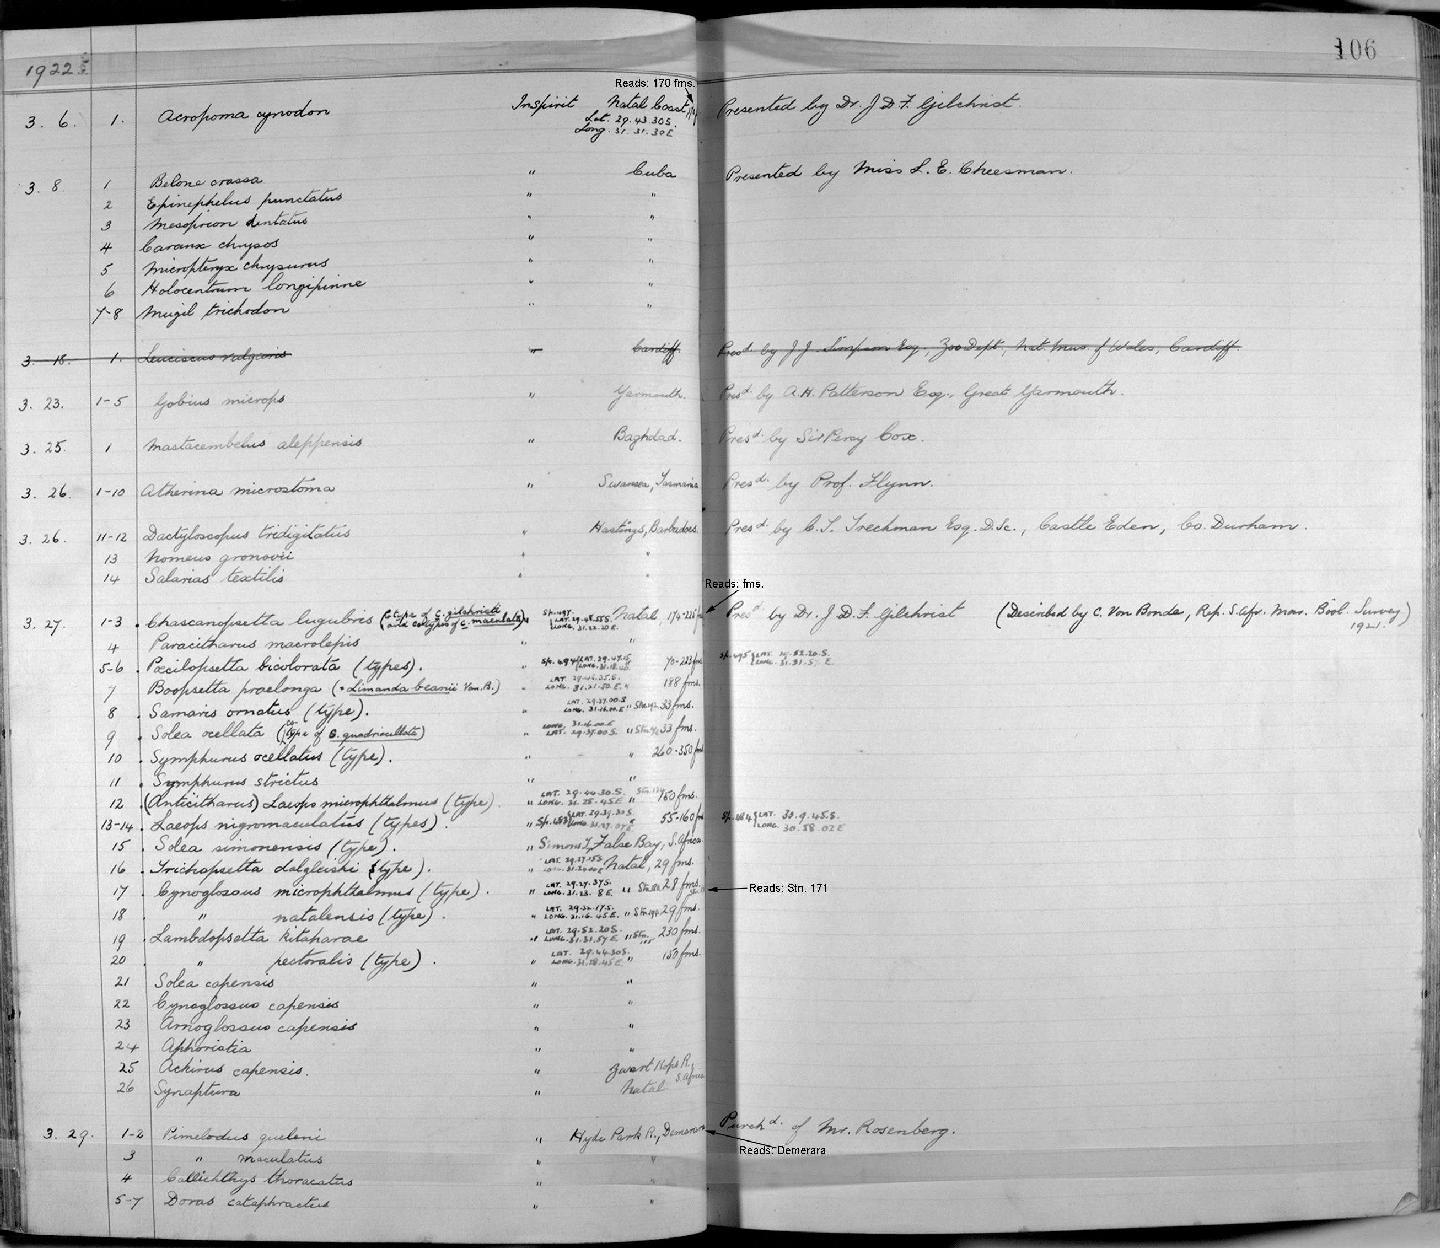 106
1922
Reads: 170 fms.
3. 6. 1. Acropoma cynodon In spirit Natal Coast Presented by Dr. J D F. Gilchrist.
Lat. 29.43.30 S.
Long. 31.31.30 E
3. 8 1 Belone crassa " Cuba Presented by Miss L. E. Cheesman.
2 Epinephelus punctatus " "
3 Mesoprion dentatus " "
4 Caranx chrysos " "
5 Micropteryx chrysurus " "
6 Holocentrum longipinne " "
7-8 Mugil trichodon " "
3. 18. 1. Leuciscus vulgaris " Cardiff. Presd. by J J. Simpson Esq., Zoo Dept, Nat. Mus. of Wales, Cardiff.
3. 23. 1-5 Gobius microps " Yarmouth. Presd. by A.H. Patterson Esq., Great Yarmouth.
3. 25. 1 Mastacembelus aleppensis " Baghdad. Presd. by Sir Percy Cox.
3. 26. 1-10 Atherina microstoma " Swansea, Tasmania Presd. by Prof. Flynn.
3. 26. 11-12 Dactyloscopus tridigitatus " Hastings, Barbadoes. Presd. by C. T. Trechman Esq. D.Sc., Castle Eden, Co. Durham.
13 Nomeus gronovii " "
14 Salarias textilis " "
Reads: fms.
3. 27. 1-3 Chascanopsetta lugubris (type of C. gilchristi and cotypes of C. maculata) Natal Presd. by Dr. J. D. F. Gilchrist (Described by C. Von Bonde, Rep. S. Afr. Mar. Biol. Survey)
1921.
4 Paracitharus macrolepis " "
5-6 Pœcilopsetta bicolorata (types). " LAT. 29.52.20 S.
LONG. 31.31.57 E.
7 Boopsetta praelonga (= Limanda beanii Von.B.) " 188 fms.
8 Samaris ornatus (type). 33 fms.
9 Solea ocellata (type of S. quadriocellata) " 33 fms.
LAT. 29.37.00 S.
10 Symphurus ocellatus (type). " " 260-350 fms
11 Symphurus strictus " "
12 (Anticitharus) Laeops microphthalmus (type). " LAT. 29.44.30 S. 150 fms.
13-14. Laeops nigromaculatus (types). " 55-160 LAT. 30.9.45 S.
LONG. 30.58.02 E
15 Solea simonensis (type). " Simons T, False Bay, S. Africa
16 Trichopsetta dalgleishi (type). " Natal, 29 fms.
17 Cynoglossus microphthalmus (type). " LAT. 29.27.37 S.
LONG. 31.23. 8 E. " 28 fms. Reads: Stn. 171
18 " natalensis (type). " LAT. 29.32.17 S.
LONG. 31.16.45 E. " 29 fms.
19 Lambdopsetta kitaharae " LAT. 29.52.20 S.
LONG. 31.31.57 E. " 230 fms.
20 " pectoralis (type). " LAT. 29.44.30 S. 150 fms.
21 Solea capensis " "
22 Cynoglossus capensis " "
23 Arnoglossus capensis " "
24 Aphoristia " "
25 Achirus capensis. " Zwart Kops R., S. Africa
26 Synaptura " Natal
3. 29. 1-2 Pimelodus queleni " Hyde Park R., Demerara Purchd. of Mr. Rosenberg.
Reads: Demerara
3 " maculatus " "
4 Callichthys thoracatus " "
5-7 Doras cataphractus " "